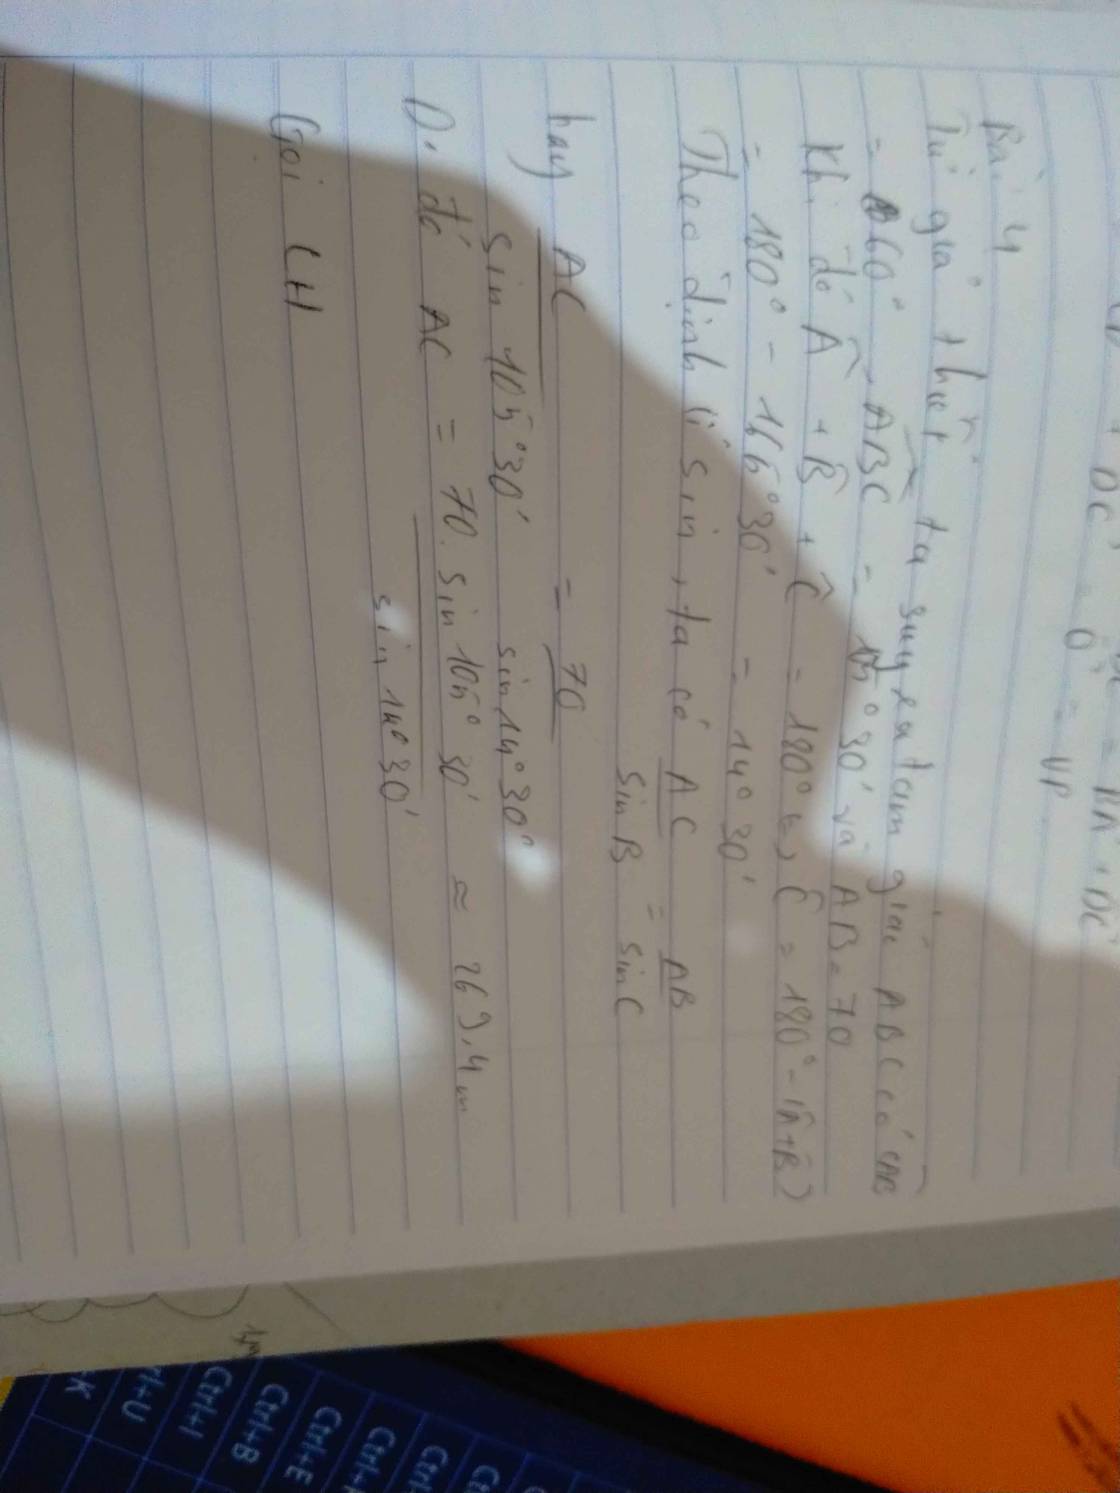 DC = 0 = VP
Bài 4
Từ giả thiết ta suy ra tam giác ABC có CAB
= 60°, ABC = 105°30' và AB = 70
Khi đó Â + B̂ + Ĉ = 180° =, Ĉ = 180° - (Â+B̂)
= 180° - 166°30' = 14°30'
Theo định lí sin, ta có AC / sin B = AB / sin C
hay AC / sin 105°30' = 70 / sin 14°30'
Do đó AC = 70. sin 105°30' / sin 14°30' ≈ 269,4 m
Gọi CH
Ctrl+U
Ctrl+I
Ctrl+B
Ctrl+E